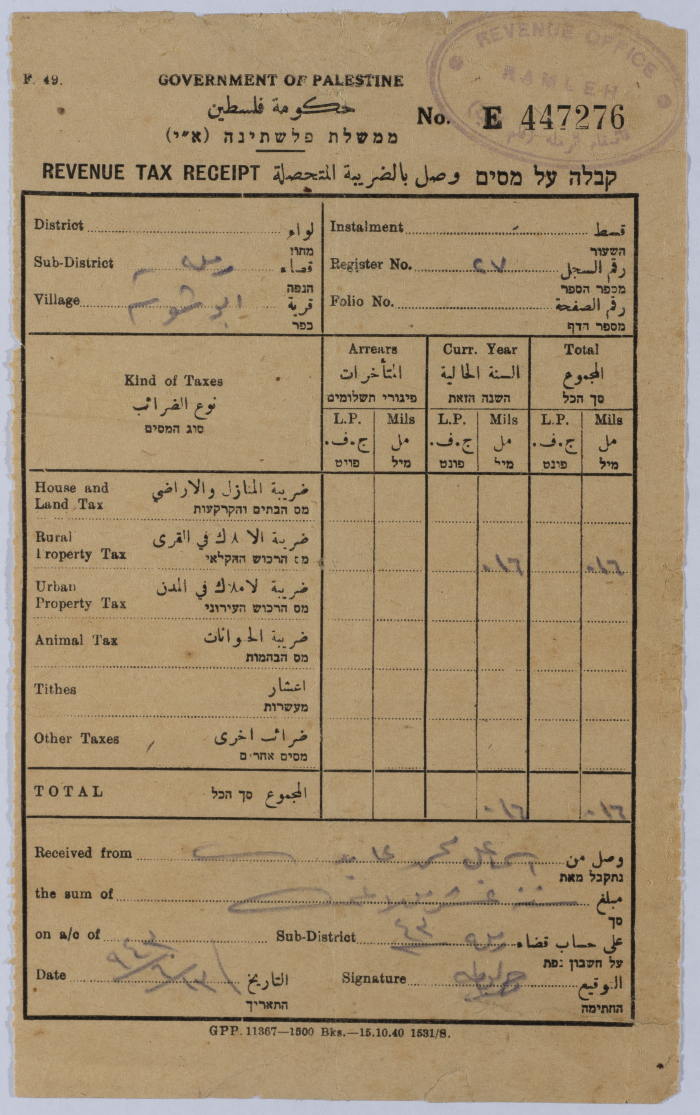 REVENUE OFFICE
RAMLEH
F. 49.
GOVERNMENT OF PALESTINE
حكومة فلسطين
ממשלת פלשתינה (א״י)
No. E 447276
REVENUE TAX RECEIPT وصل بالضريبة المتحصلة קבלה על מסים
District لواء
מחוז
Sub-District رمله قضاء
הנפה
Village قرية
כפר
Instalment قسط
השעור
Register No. ٢٧ رقم السجل
מספר הספר
Folio No. رقم الصفحة
מספר הדף
Kind of Taxes
نوع الضرائب
סוג המסים
Arrears
المتأخرات
פיגורי תשלומים
Curr. Year
السنة الحالية
השנה הזאת
Total
المجموع
סך הכל
L.P. Mils L.P. Mils L.P. Mils
ج.ف. مل ج.ف. مل ج.ف. مل
פונט מיל פונט מיל פונט מיל
House and ضريبة المنازل والاراضي
Land Tax מס הבתים והקרקעות
Rural ضريبة الاملاك في القرى
Property Tax מס הרכוש החקלאי
٠١٦ ٠١٦
Urban ضريبة الاملاك في المدن
Property Tax מס הרכוש העירוני
Animal Tax ضريبة الحيوانات
מס הבהמות
Tithes اعشار
מעשרות
Other Taxes ضرائب اخرى
מסים אחרים
TOTAL المجموع סך הכל
٠١٦ ٠١٦
Received from محمد وصل من
נתקבל מאת
the sum of مبلغ
סך
on a/c of Sub-District رمله على حساب قضاء
על חשבון נפת
Date التاريخ
התאריך
Signature التوقيع
החתימה
GPP. 11367—1500 Bks.—15.10.40 1531/S.